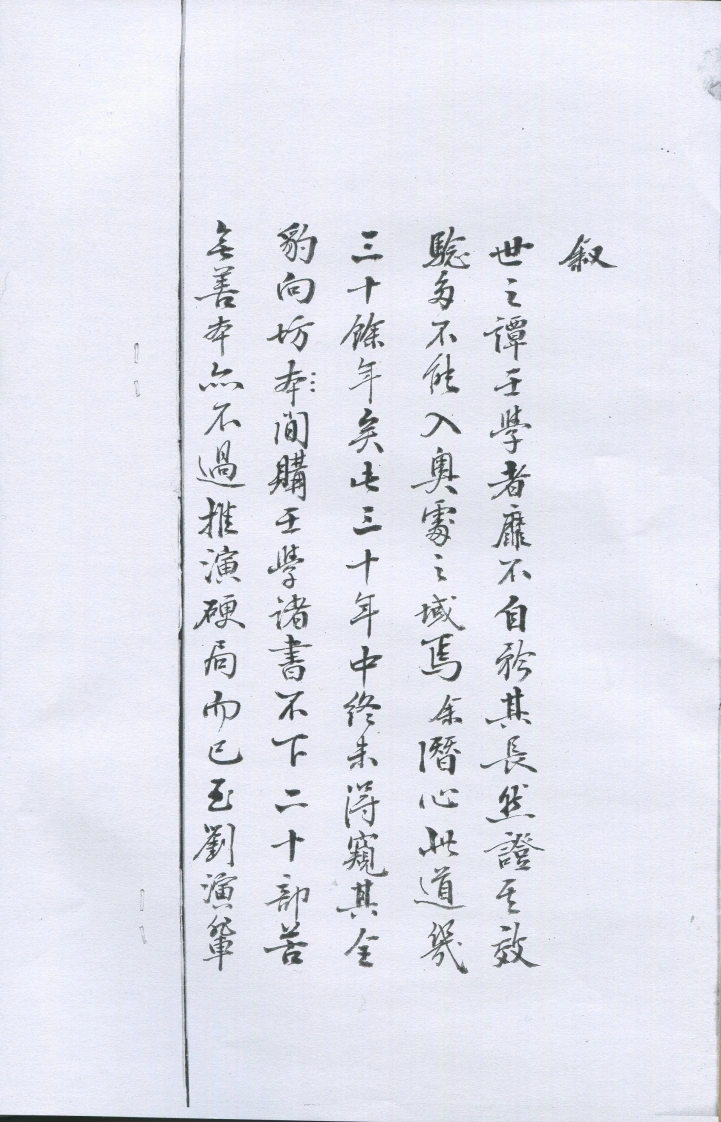 叙
世之譚壬學者靡不自矜其長然證其效
驗多不能入奧窔之域焉余潛心此道幾
三十餘年矣此三十年中終未得窺其全
豹向坊本間購壬學諸書不下二十部苦
無善本亦不過推演硬局而已至劉演輩